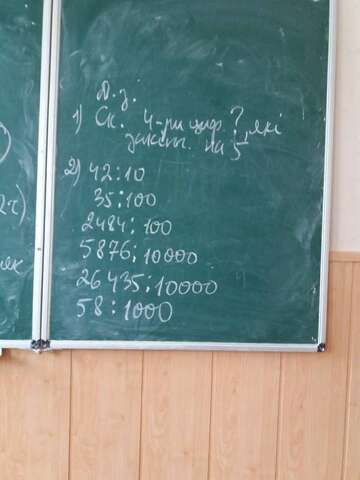 Д.з.
1) Ск. 4-ри циф. ?, які
закінч. на 5
2) 42:10
35:100
2484:100
5876:10000
26435:10000
58:1000
)
2г).
як